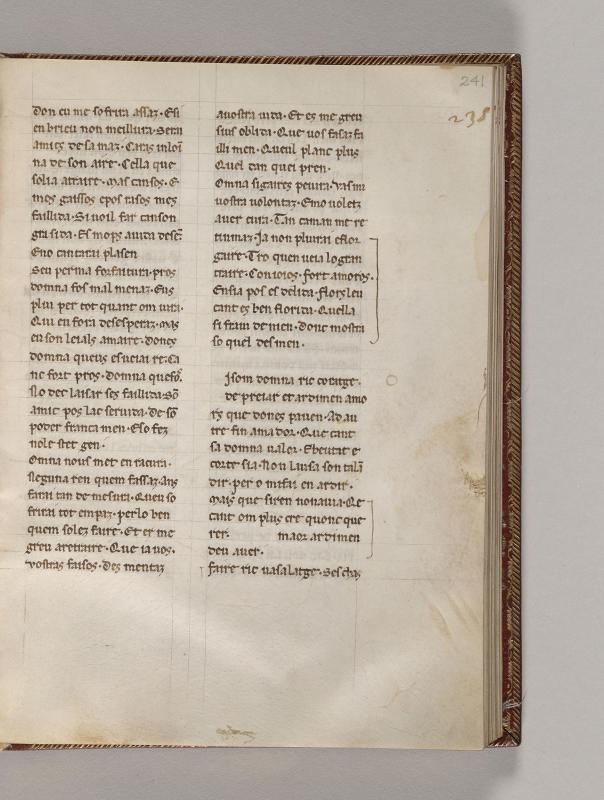 241
238
don eu me sofrira assaz · Esi
en brieu non meillura · Sera
amics de sa maz · Caras inloī
na de son aire · Cella que
solia atraire · Mas cansos · E
mos gaissos epos rasos mes
faillida · Si uoil far canson
gra sida · Es mops aiuda desc̄
Eno cantarai plasen
Seu perma forfaitura · pros
domna fos mal menaz · Eus
plui per tot quant om uira ·
Qui en fora desesperaz · mas
eu son leials amaire · dones
domna queus esueiai re · Ca
nc fort pros · domna
No dec laisar ses faillida · Sō
amic pos lac seruida · de sō
poder franca men · E so fez
nole stet gen ·
Omna nous met en racura ·
Neguna ren quem fassaz · ans
farai tan de mesura · Queu so
frirai tot em paz · perlo ben
quem solez faire · Et er me
greu aretraire · Que ia uos ·
uostras faisos · Des mentaz
auostra uida · Et es me greu
sius oblida · Que uos fasaz fa
illi men · Queuil planc plus
Quel dan quei pren ·
Omna sigaires peiura · Vas mi
uostra uolontaz · Emo uoletz
auer cura · Tan caman me re
tinmaz · Ja non plurai eslor
gaire · Tro quen ueia logran
ctaire · Con ioios · fort amoros ·
Ensia pos es delida · flors leu
cant es ben florida · Quella
si fraiu de men · Donc mostra
so quel des men ·
Jsom domna ric coratge ·
de preiar et ardimen amo
rs que dones pauen · Ad au
tre fin amador · Que cant
sa domna ualor · E beutat e
corte sia · Non laissa son talā
dir · per o mifai en ardir ·
mais que siren nonauia · Qe
cant om plus cre quonc que
rer · maor ardimen
deu auer ·
faire ric uasalatge · Ses chas